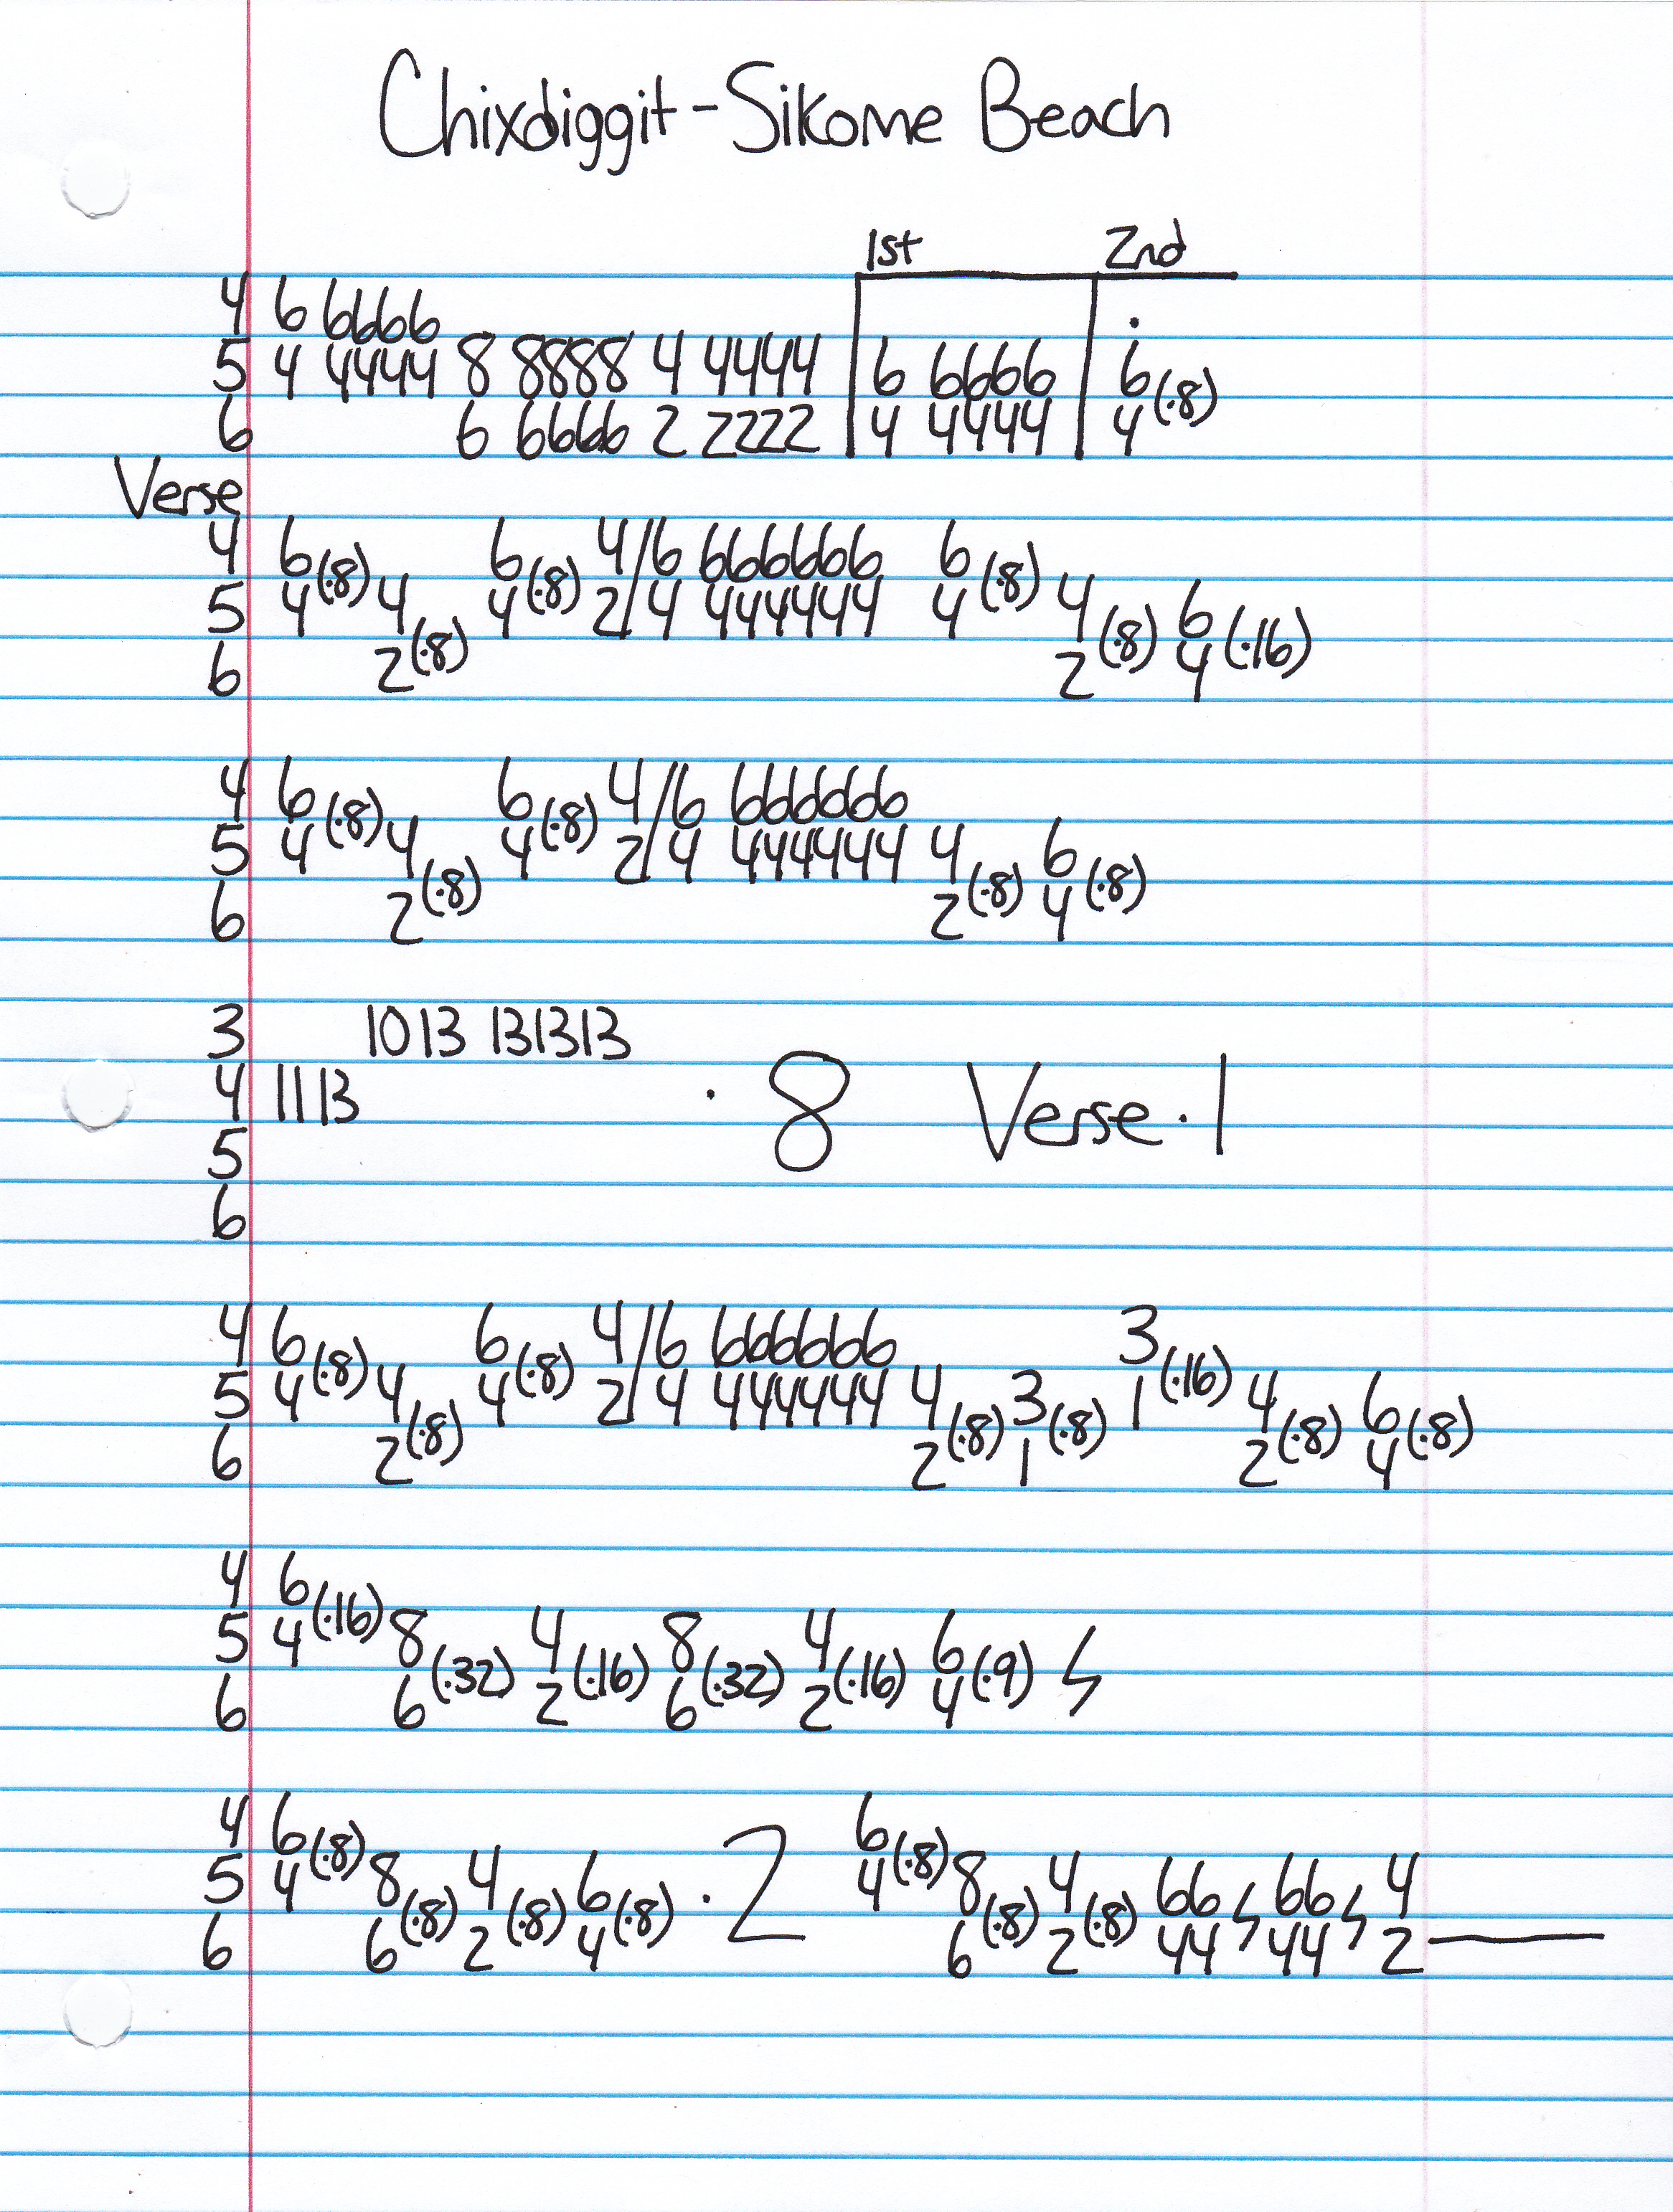 Chixdiggit - Sikome Beach
1st 2nd
4 6 6666
5 4 4444 8 8888 4 4444 6 6666 6(·8)
6 6 6666 2 2222 4 4444 4
Verse
4 6(·8) 6(·8) 4/6 666666 6(·8)
5 4 4 4 2/4 444444 4 4 6
6 2(·8) 2(·8) 4(·16)
4 6(·8) 6(·8) 4/6 666666
5 4 4 4 2/4 444444 4 6
6 2(·8) 2(·8) 4(·8)
3 10 13 13 13 13
4 11 13 · 8 Verse · 1
5
6
4 6(·8) 6(·8) 4/6 666666 3
5 4 4 4 2/4 444444 4 3 1(·16) 4 6
6 2(·8) 2(·8) 1(·8) 2(·8) 4(·8)
4 6
5 4(·16) 8 4 8 4 6
6 6(·32) 2(·16) 6(·32) 2(·16) 4(·9)
4 6(·8) 6(·8)
5 4 8 4 6 · 2 4 8 4 66 66 4
6 6(·8) 2(·8) 4(·8) 6(·8) 2(·8) 44 44 2